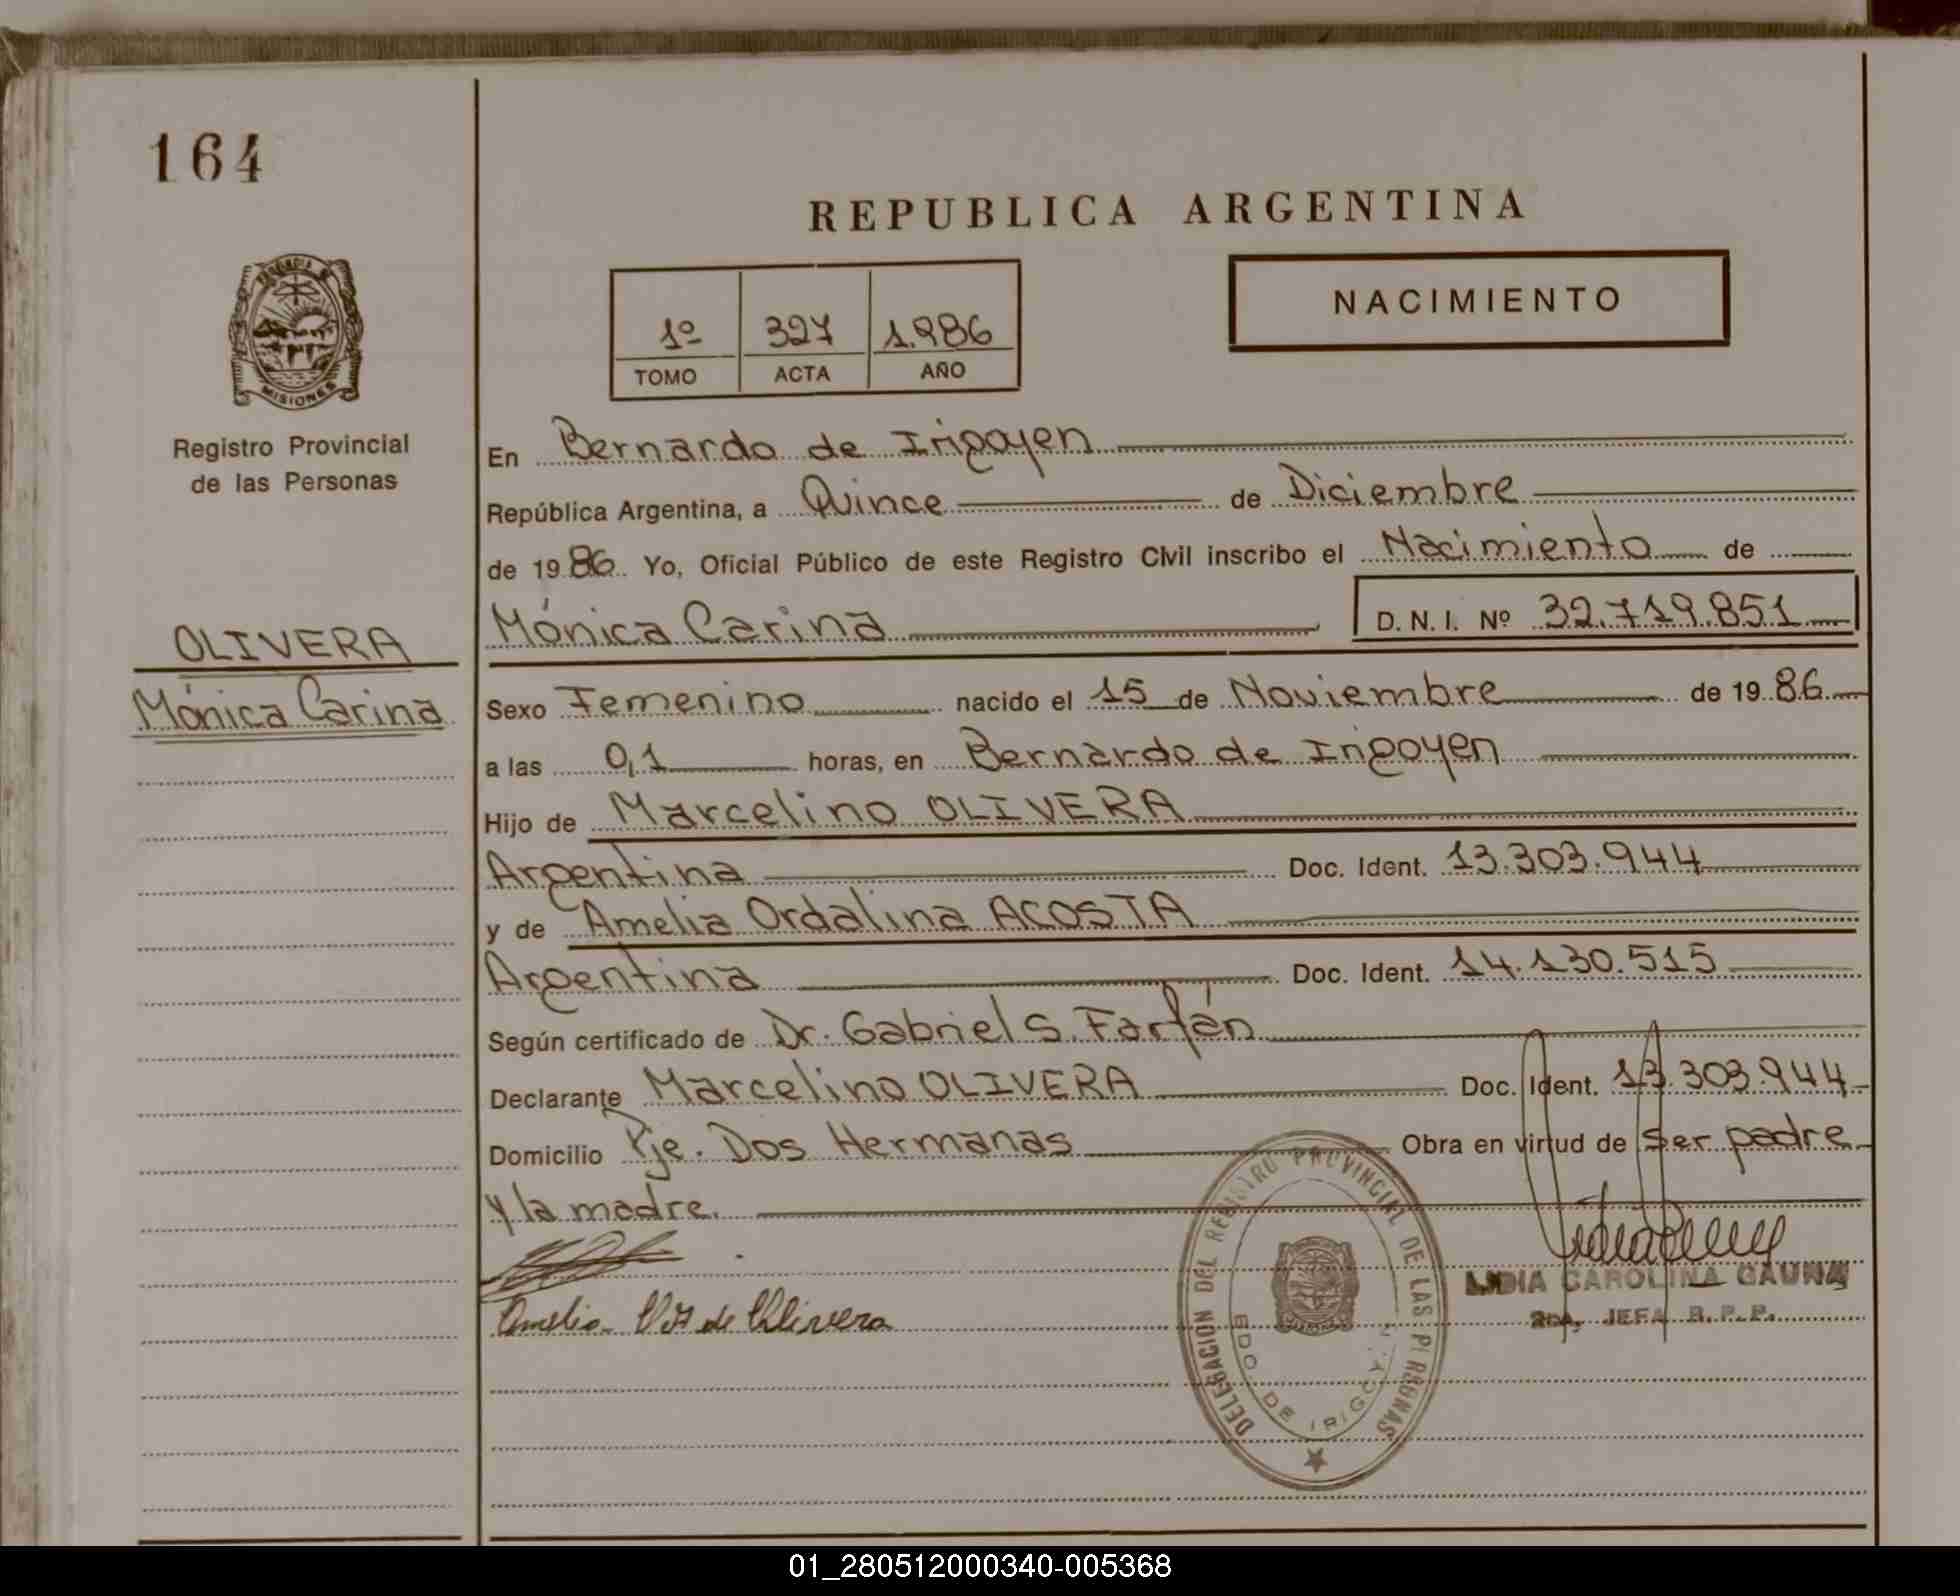 164
REPUBLICA ARGENTINA
PROVINCIA D
MISIONES
Registro Provincial
de las Personas
NACIMIENTO
1º 327 1.986
TOMO ACTA AÑO
En Bernardo de Irigoyen
República Argentina, a Quince de Diciembre
de 1986. Yo, Oficial Público de este Registro Civil inscribo el Nacimiento de
Mónica Carina D. N. I. Nº 32.719.851
OLIVERA
Mónica Carina
Sexo Femenino nacido el 15 de Noviembre de 1986
a las 0,1 horas, en Bernardo de Irigoyen
Hijo de Marcelino OLIVERA
Argentina Doc. Ident. 13.303.944
y de Amelia Ordalina ACOSTA
Argentina Doc. Ident. 14.130.515
Según certificado de Dr. Gabriel S. Farfán
Declarante Marcelino OLIVERA Doc. Ident. 13.303.944
Domicilio Pje. Dos Hermanas Obra en virtud de ser padre
y la madre.
Amelia de Olivera
DELEGACION DEL REGISTRO PROVINCIAL DE LAS PERSONAS
BDO. DE IRIGOY
LIDIA CAROLINA GAUNA
2da. JEFA R.P.P.
01_280512000340-005368